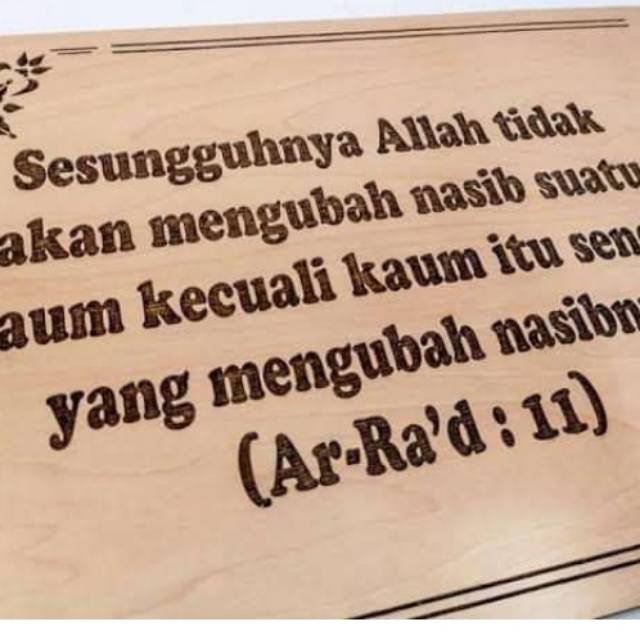 Sesungguhnya Allah tidak
akan mengubah nasib suatu
aum kecuali kaum itu sen
yang mengubah nasibn
(Ar-Ra'd : 11)